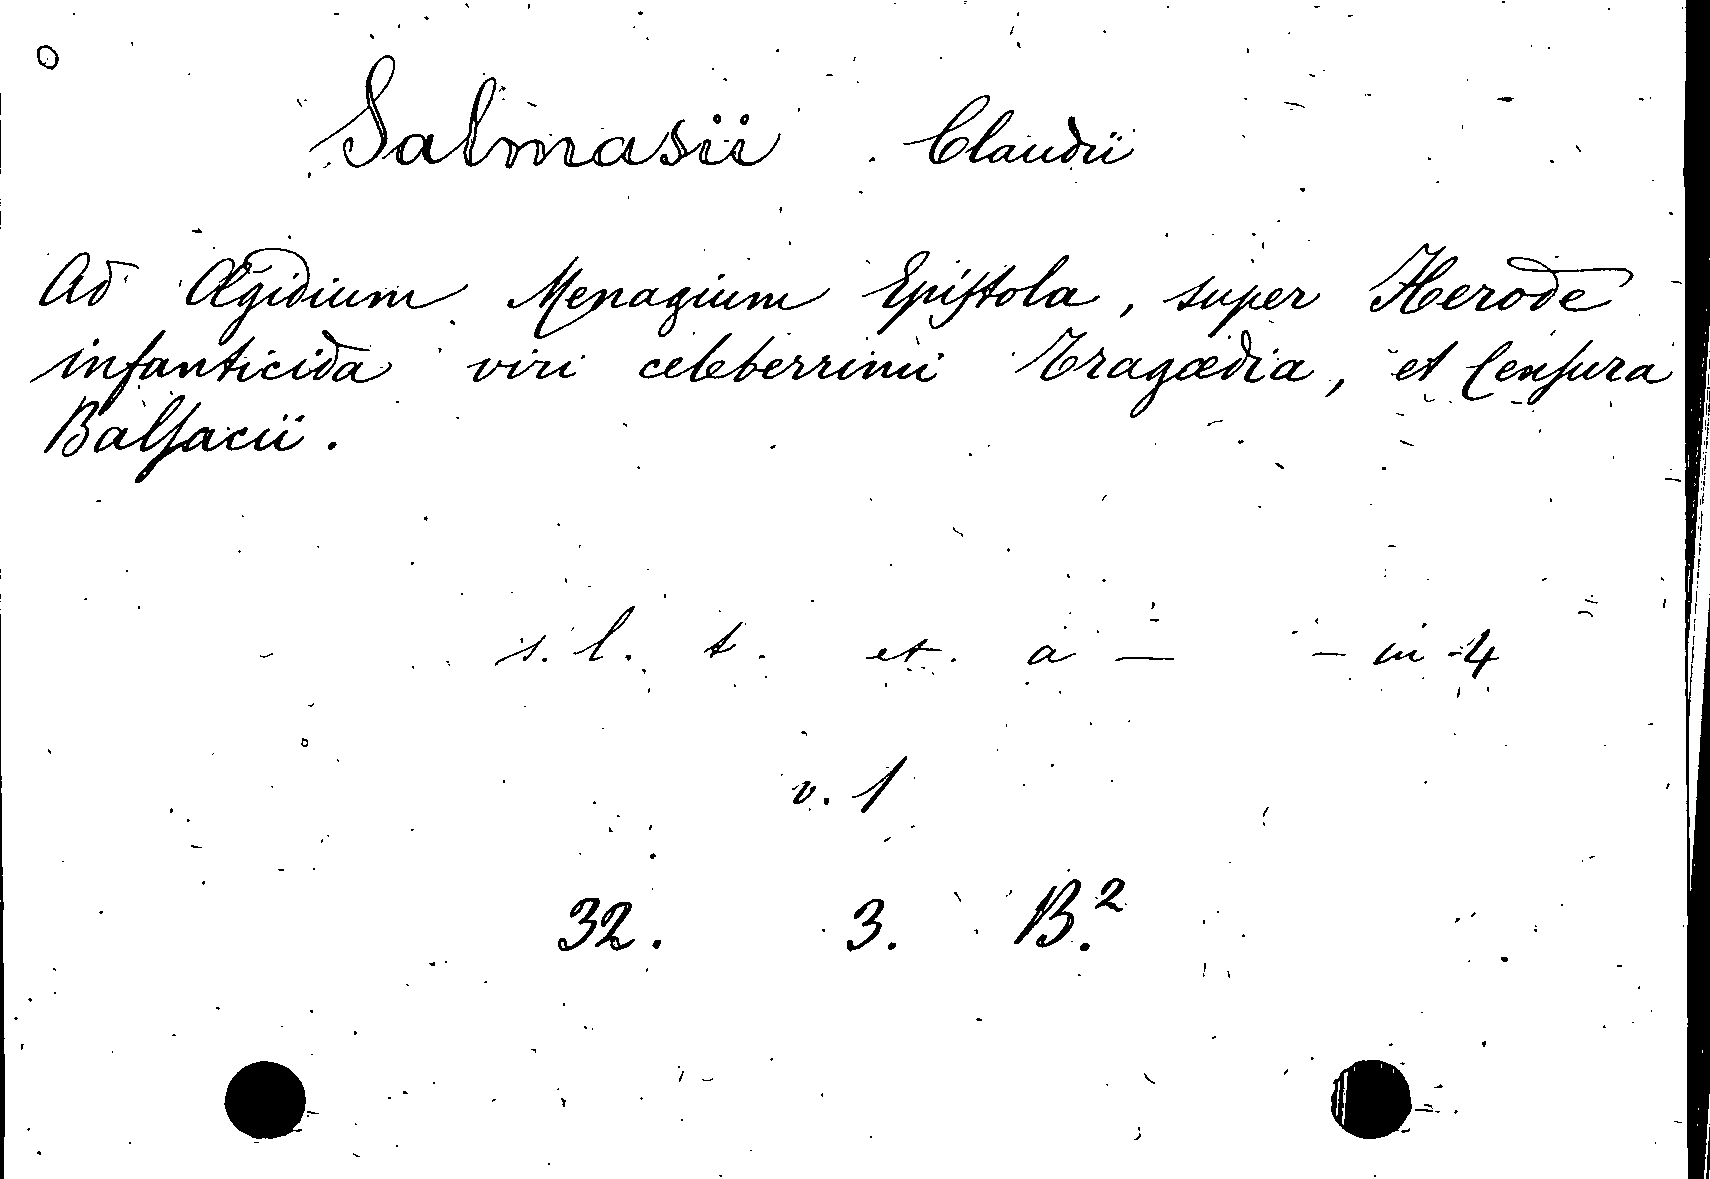 Salmasii Claudii
Ad Ægidium Menagium Epistola, super Herode
infanticida viri celeberrimi Tragædia, et Censura
Balsacii.
s. l. t. et. a — — in-4
v. 1
32. 3. B.²